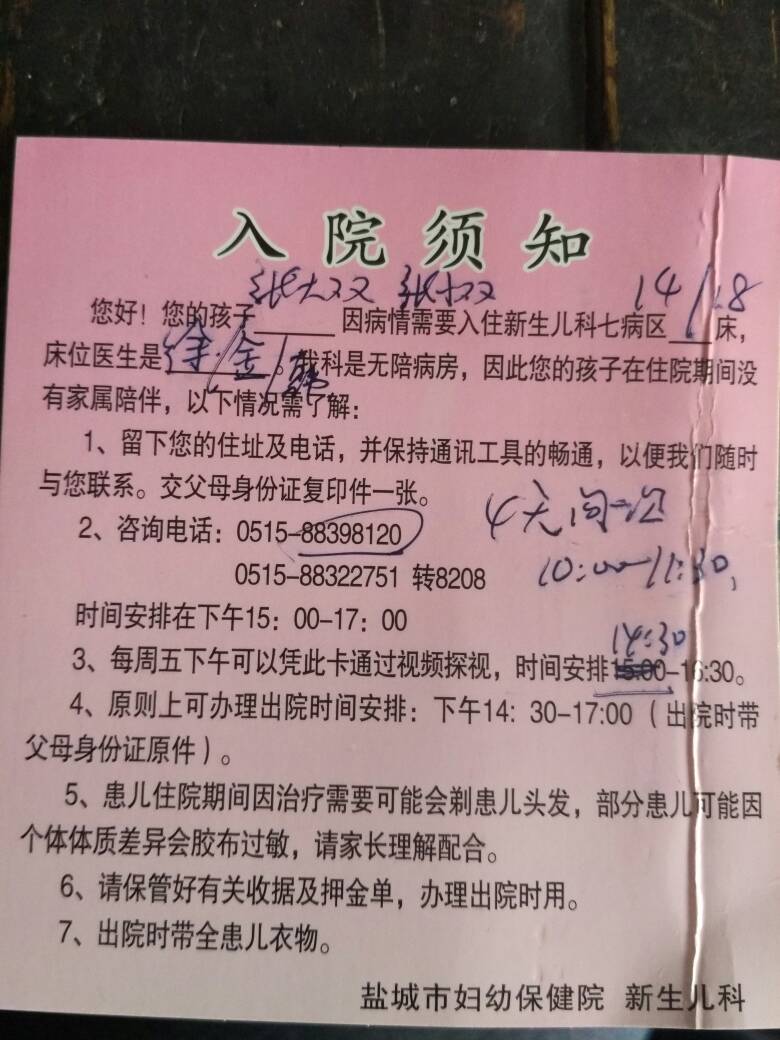 入院须知
张大双 张小双 14/18
您好！您的孩子____因病情需要入住新生儿科七病区__床，
床位医生是徐/金/ 。我科是无陪病房，因此您的孩子在住院期间没
有家属陪伴，以下情况需了解：
1、留下您的住址及电话，并保持通讯工具的畅通，以便我们随时
与您联系。交父母身份证复印件一张。
4天问一次
2、咨询电话：0515-88398120
10:00-11:30,
0515-88322751 转8208
时间安排在下午15：00-17：00
14:30
3、每周五下午可以凭此卡通过视频探视，时间安排15:00-16:30。
4、原则上可办理出院时间安排：下午14：30-17:00（出院时带
父母身份证原件）。
5、患儿住院期间因治疗需要可能会剃患儿头发，部分患儿可能因
个体体质差异会胶布过敏，请家长理解配合。
6、请保管好有关收据及押金单，办理出院时用。
7、出院时带全患儿衣物。
盐城市妇幼保健院 新生儿科